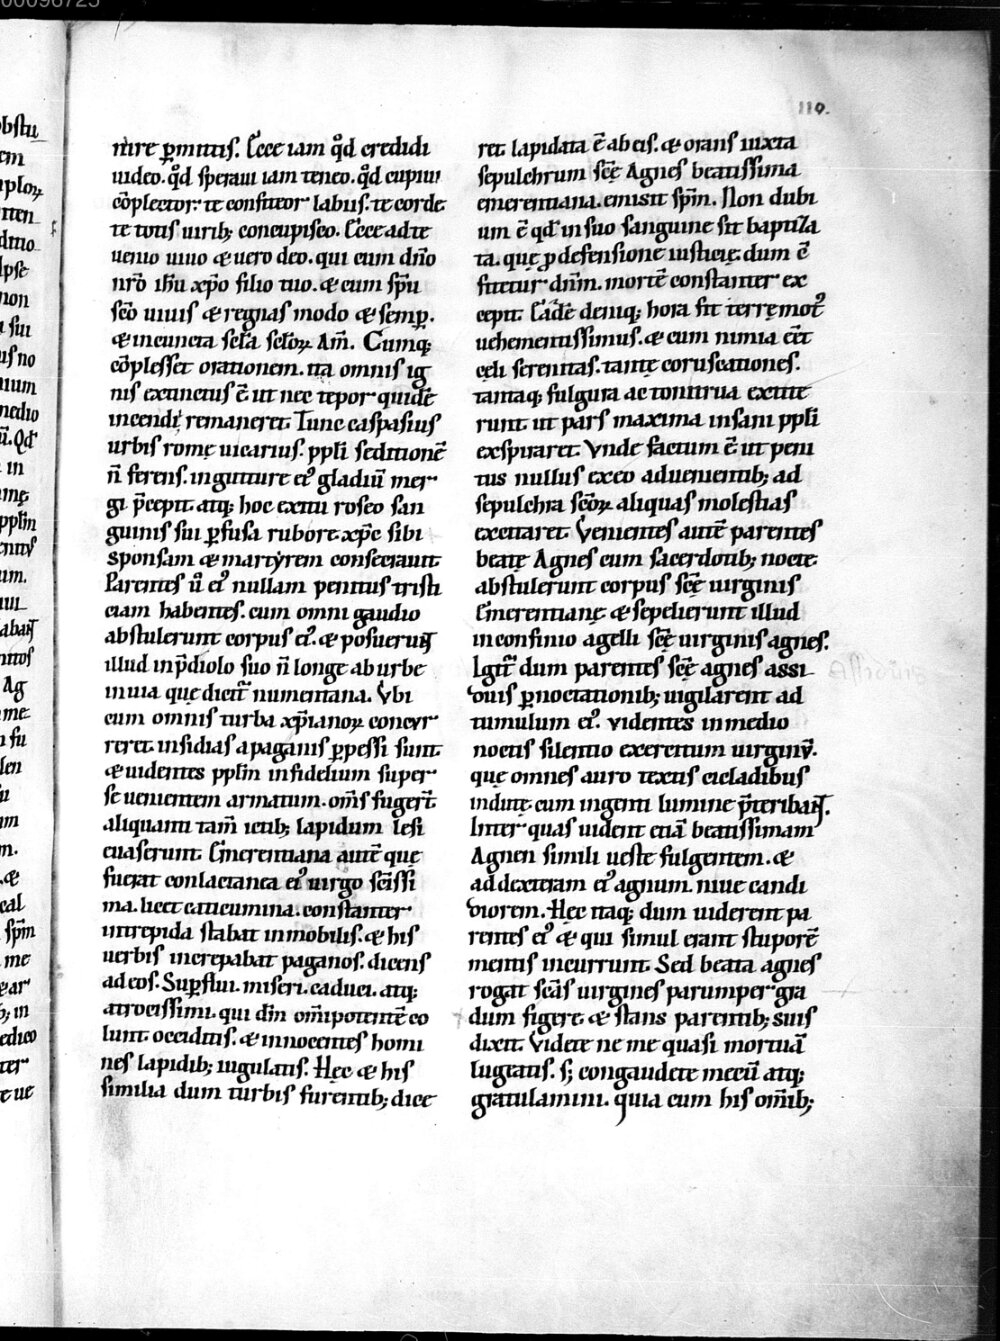 00098725
110.
nire ꝑmittis. Ecce iam qđ credidi
uideo. qđ speraui iam teneo. qđ cupiui
cōplector. te confiteor labus. te corde
te totis uirib; concupisco. Ecce ad te
uenio uiuo & uero deo. qui cum dño
nr̄o ihu xp̄o filio tuo. & cum sp̄u
sc̄o uiuis & regnas modo & semp̲.
& in cuncta sc̄la sc̄loꝝ Am̄. Cumq;
cōplesset orationem. ita omnis ig
nis extinctus ē ut nec tepor quidē
incendii remaneret. Tunc caspasius
urbis romę uicarius. ppl̄i seditionē
n̄ ferens. in gutture ei' gladiū mer
gi p̄cepit. atq; hoc exitu roseo san
guinis sui ꝑfusa rubore. xp̄c sibi
sponsam & martyrem consecrauit
Parentes ū ei' nullam penitus tristi
ciam habentes. cum omni gaudio
abstulerunt corpus ei'. & posuerunt
illud in p̄diolo suo n̄ longe ab urbe
in uia que dicit' numentana. Vbi
cum omnis turba xp̄ianoꝝ concur
reret. insidias a paganis ꝑpessi sunt.
& uidentes ppl̄m infidelium super
se uenientem armatum. om̄s fuger̄t.
aliquanti tam̄ ictib; lapidum lesi
euaserunt. Emerentiana autē que
fuerat conlactanea ei' uirgo sc̄issi
ma. licet caticumina. constanter
intrepida stabat inmobilis. & his
uerbis increpabat paganos. dicens
ad eos. Suꝑflui. miseri. caduci. atq;
atrocissimi. qui dn̄i om̄ipotentē co
lunt. occiditis. & innocentes homi
nes lapidib; iugulatis. Hęc & his
similia dum turbis furentib; dice
ret. lapidata ē ab eis. & orans iuxta
sepulchrum sc̄ę Agnes beatissima
emerentiana. emisit sp̄m. Non dubi
um ē qđ in suo sanguine sit baptiza
ta. quę ꝓ defensione iusticię. dum ē
fitetur dn̄m. mortē constanter ex
cepit. Eadē deniq; hora fit terręmot'
uehementissimus. & cum nimia eēt
cęli serenitas. tantę coruscationes.
tantaq; fulgura ac tonitrua extite
runt. ut pars maxima insani ppl̄i
exspiraret. Vnde factum ē ut peni
tus nullus ex eo aduenientib; ad
sepulchra sc̄oꝝ aliquas molestias
excitaret. Venientes autē parentes
beatę Agnes cum sacerdotib; nocte.
abstulerunt corpus sc̄ę uirginis
Emerentianę & sepelierunt illud
in confinio agelli sc̄ę uirginis agnes.
Igit' dum parentes sc̄ę agnes assi
duis ꝑnoctationib; uigilarent ad
tumulum ei'. videntes in medio
noctis silentio exercitum uirginū.
quę omnes auro textis cicladibus
indutę cum ingenti lumine p̄teribant.
Inter quas uident etiā beatissimam
Agnen simili ueste fulgentem. &
ad dexteram ei' agnum. niue candi
diorem. Hęc itaq; dum uiderent pa
rentes ei' & qui simul erant stuporē
mentis incurrunt. Sed beata agnes
rogat sc̄as uirgines parumper gra
dum figere. & stans parentib; suis
dixit. Videte ne me quasi mortuā
lugeatis. s; congaudete mecū atq;
gratulamini. quia cum his om̄ib;